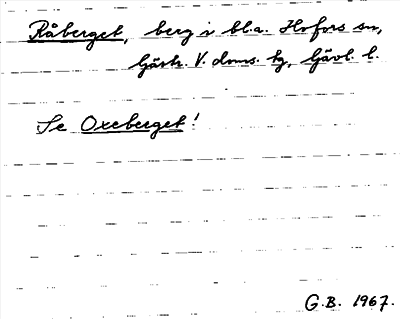 Råberget, berg i bl.a. Hofors sn,
Gästr. V. doms. tg, Gävl. l.
Se Oxeberget!
G.B. 1967.